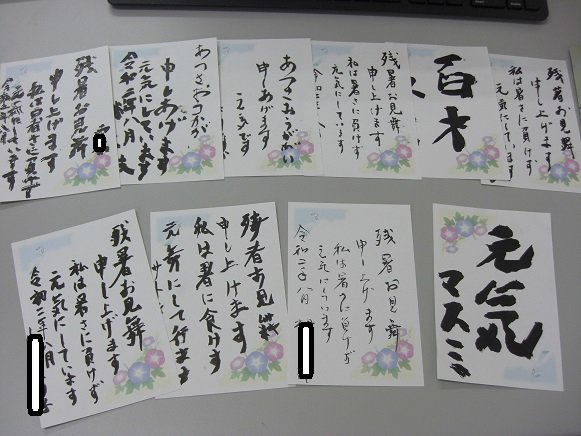 残暑お見舞
申し上げます
私は暑さに負けず
元気にしています
令和二年八月
あつさおうかがい
申しあげます
元気にしています
令和二年八月
あつさおうかがい
申しあげます
元気です
残暑お見舞
申し上げます
私は暑さに負けず
元気にしています
令和二年
百才
残暑お見舞
申し上げます
私は暑さに負けず
元気にしています
残暑お見舞
申し上げます
私は暑さに負けず
元気にしています
令和二年八月
残暑お見舞
申し上げます
私は暑に負けず
元気にして行ます
残暑お見舞
申し上げます
私は暑さに負けず
元気にしています
令和二年八月
元気
マスミ